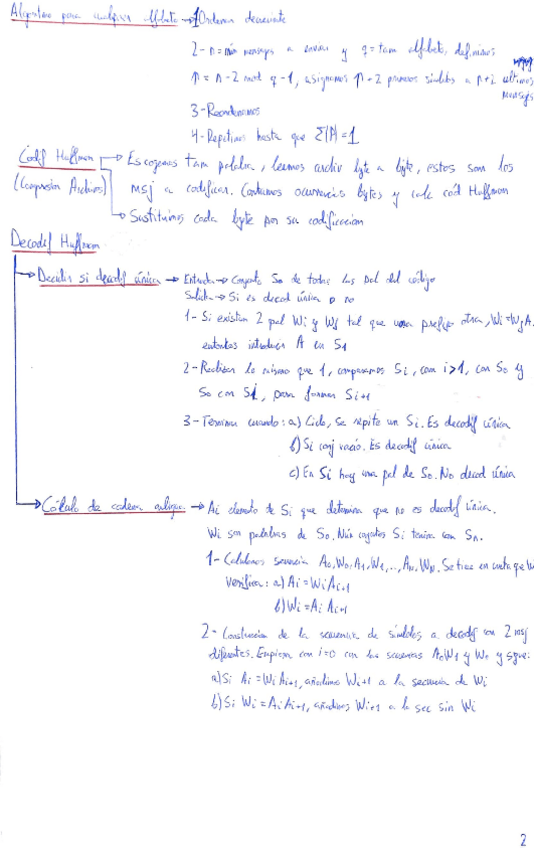 Algoritmo para cualquier alfabeto → 1 Ordenar decreciente
2- n = núm mensajes a enviar y q = tam alfabeto, definimos
p = n - 2 mod q - 1, asignamos p + 2 primeros símbolos a p + 2 últimos
mensajes
3- Reordenamos
4- Repetimos hasta que Σ(P) = 1
Codif Huffman → Escogemos tam palabra, leemos archiv byte a byte, estos son los
(Compresión Archivos) msj a codificar. Contamos ocurrencias bytes y cod Huffman
→ Sustituimos cada byte por su codificación
Decodif Huffman
→ Decidir si decodif única → Entrada → Conjunto S0 de todas las pal del código
Salida → Si es decod única o no
1- Si existen 2 pal Wi y Wj tal que una prefijo otra, Wi = WjA.
entonces introducir A en S1
2- Realizar lo mismo que 1, comparamos Si, con i>1, con S0 y
S0 con Si, para formar Si+1
3- Termina cuando: a) Ciclo, se repite un Si. Es decodif única
b) Si conj vacío. Es decodif única
c) En Si hay una pal de S0. No decod única
→ Cálculo de cadena → Ai elemento de Si que determina que no es decodif única.
Wi son palabras de S0. conjuntos Si termina con Sn.
1- secuencia A0, W0, A1, W1, .., An, Wn. Se tiene en cuenta que Wi
verifica: a) Ai = WiAi+1
b) Wi = AiAi+1
2- Construcción de la secuencia de símbolos a decodif con 2 msj
diferentes. Empieza con i=0 con las secuencias A0W1 y W0 y sigue:
a) Si Ai = WiAi+1, añadimos Wi+1 a la secuencia de Wi
b) Si Wi = AiAi+1, añadimos Wi+1 a la sec sin Wi
2